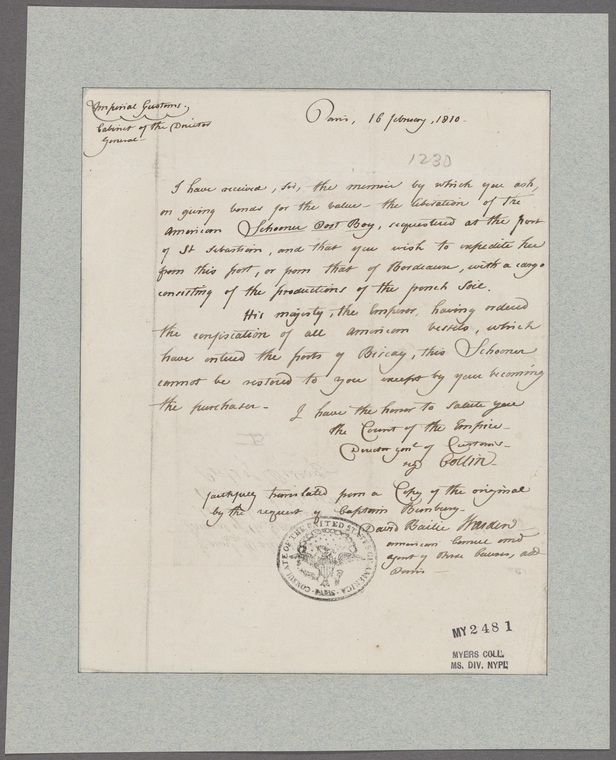 Imperial Customs.
Cabinet of the Director
General -
Paris, 16 february, 1810.
1230
I have received, Sir, the memoir by which you ask,
on giving bonds for the value - the liberation of the
American Schooner Post Boy, sequestered at the port
of St Sebastian, and that you wish to expedite her
from this port, or from that of Bordeaux, with a cargo
consisting of the productions of the french soil.
His majesty, the Emperor, having ordered
the confiscation of all American vessels, which
have entered the ports of Biscay, this Schooner
cannot be restored to you except by your becoming
the purchaser -
I have the honor to salute you
the Count of the Empire -
Director genl of Customs -
Collin -
faithfully translated from a Copy of the original
by the request of Captain Bunbury -
David Bailie Warden
American Consul and
agent of Prize Causes, at
Paris -
CONSULATE OF THE UNITED STATES OF AMERICA
· PARIS ·
MY 2481
MYERS COLL.
MS. DIV. NYPL